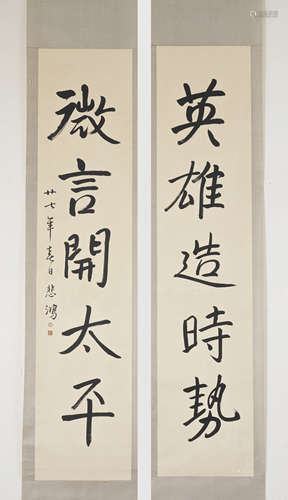 英雄造時勢
微言開太平
廿七年春日悲鴻